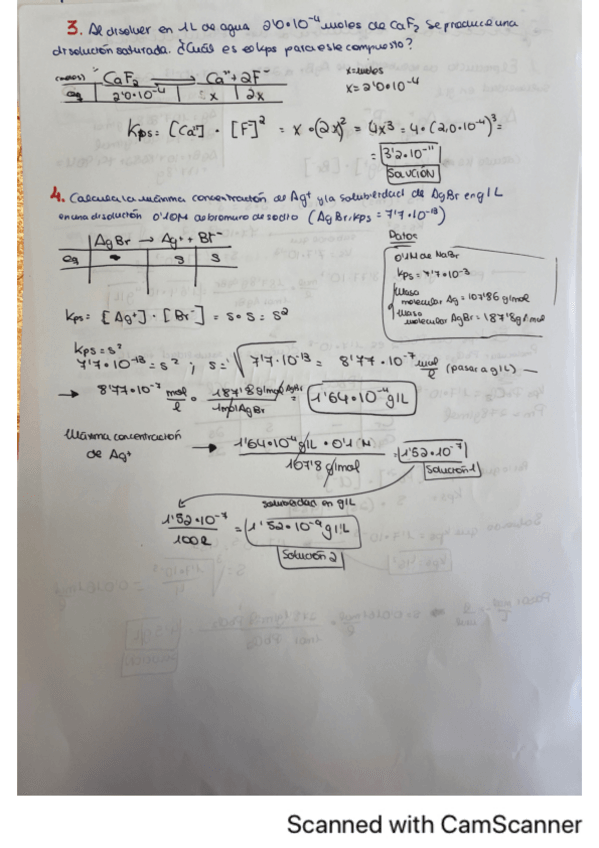 3. Al disolver en 1L de agua 2'0•10⁻⁴ moles de CaF₂ se produce una
disolución saturada. ¿Cuál es el kps para este compuesto?
(moles) CaF₂ → Ca²⁺ + 2F⁻
eq 2'0•10⁻⁴ x 2x
x=moles
x=2'0•10⁻⁴
Kps = [Ca²⁺] • [F⁻]² = x•(2x)² = 4x³ = 4•(2,0•10⁻⁴)³ =
= 3'2•10⁻¹¹
SOLUCIÓN
4. Calcula la máxima concentración de Ag⁺ y la solubilidad de AgBr en g/L
en una disolución 0'10M de bromuro de sodio (AgBr: kps = 7'7•10⁻¹³)
AgBr → Ag⁺ + Br⁻
eq - s s
Datos
0'1M de NaBr
Kps = 7'7•10⁻³
Masa
molecular Ag = 107'86 g/mol
Masa
molecular AgBr = 187'8 g/mol
Kps = [Ag⁺] • [Br⁻] = s•s = s²
Kps = s²
7'7•10⁻¹³ = s² ; s = √7'7•10⁻¹³ = 8'77•10⁻⁷ mol/l (pasar a g/L) —
→ 8'77•10⁻⁷ mol/l • 187'8 g/mol AgBr / 1mol AgBr = 1'64•10⁻⁴ g/L
Máxima concentración
de Ag⁺
→ 1'64•10⁻⁴ g/L • 0'1 (M) / 107'8 g/mol = 1'52•10⁻⁷
Solución 1
solubilidad en g/L
1'52•10⁻⁷ / 100 = 1'52•10⁻⁹ g/L
Solución 2
Scanned with CamScanner